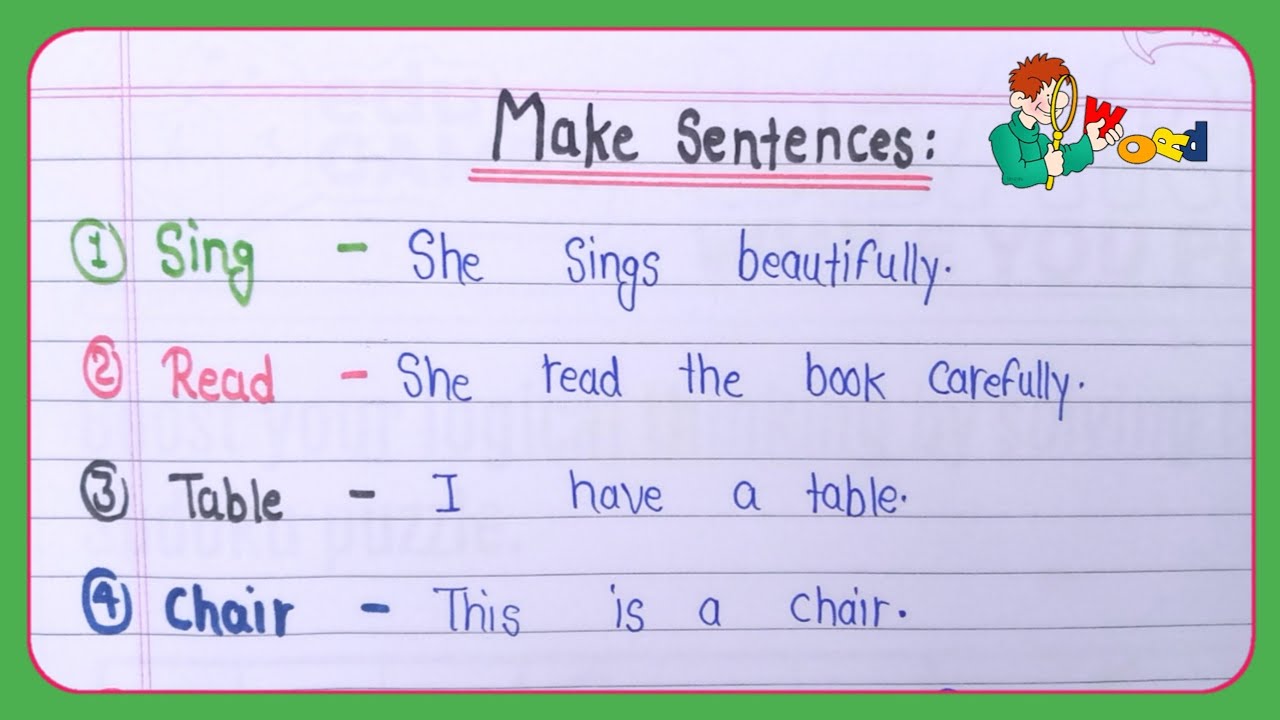 Make Sentences:
WORD
① Sing - She Sings beautifully.
② Read - She read the book carefully.
③ Table - I have a table.
④ Chair - This is a chair.